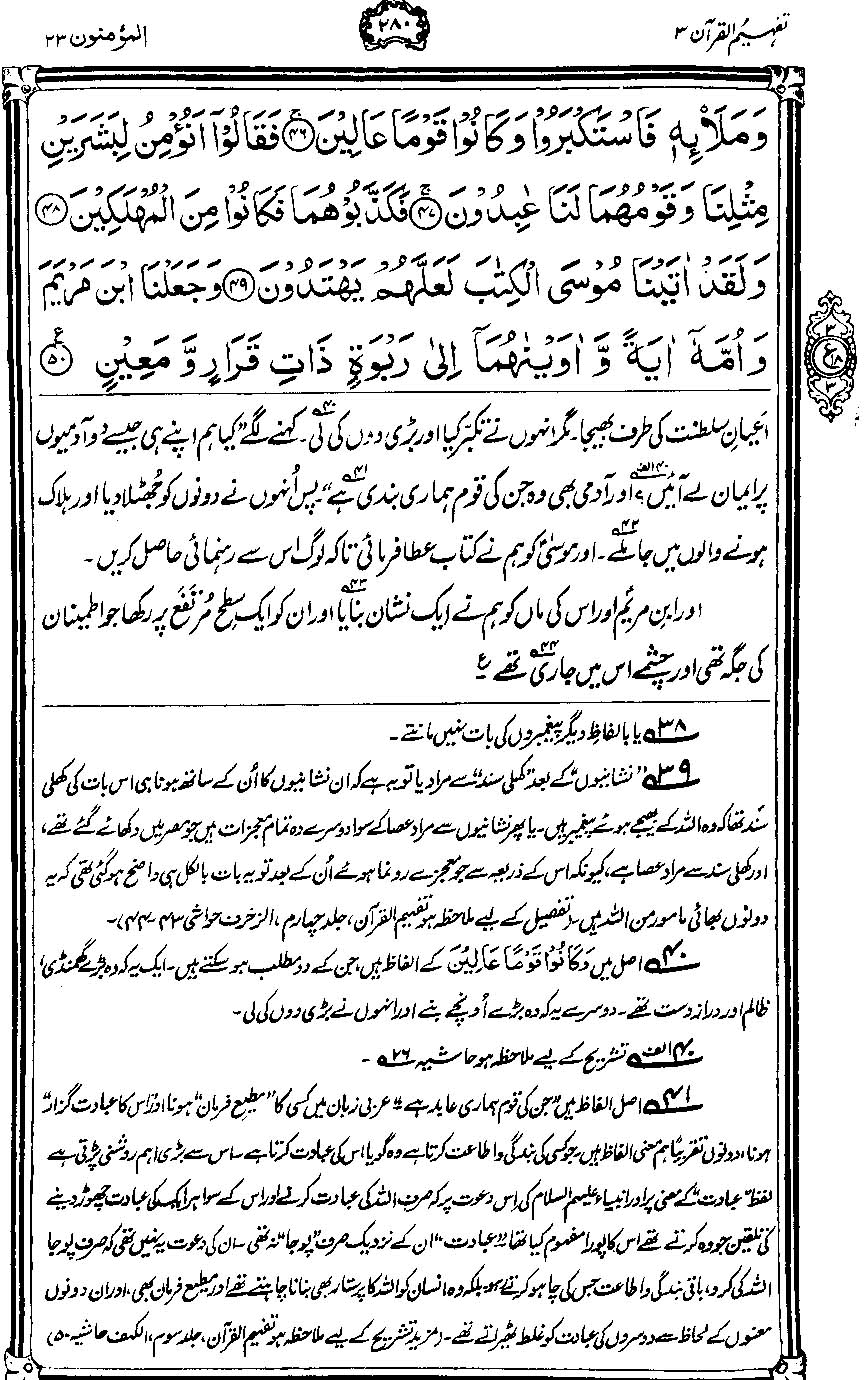 تفہیم القرآن ۳
۲۸۰
المؤمنون ۲۳
وَمَلَا۟ئِهٖ فَاسْتَكْبَرُوْا وَكَانُوْا قَوْمًا عَالِيْنَ ﴿۴۶﴾ۚ فَقَالُوْٓا اَنُؤْمِنُ لِبَشَرَيْنِ
مِثْلِنَا وَقَوْمُهُمَا لَنَا عٰبِدُوْنَ ﴿۴۷﴾ۚ فَكَذَّبُوْهُمَا فَكَانُوْا مِنَ الْمُهْلَكِيْنَ ﴿۴۸﴾
وَلَقَدْ اٰتَيْنَا مُوْسَى الْكِتٰبَ لَعَلَّهُمْ يَهْتَدُوْنَ ﴿۴۹﴾ وَجَعَلْنَا ابْنَ مَرْيَمَ
وَاُمَّهٗٓ اٰيَةً وَّاٰوَيْنٰهُمَآ اِلٰى رَبْوَةٍ ذَاتِ قَرَارٍ وَّمَعِيْنٍ ﴿۵۰﴾ ع
۳
ع ۱۸
۳
اعیانِ سلطنت کی طرف بھیجا۔ مگر انہوں نے تکبّر کیا اور بڑی دوں کی لی۴۰۔ کہنے لگے ”کیا ہم اپنے ہی جیسے دو آدمیوں
پر ایمان لے آئیں۴۰الف؟ اور آدمی بھی وہ جن کی قوم ہماری بندی ہے“۴۱۔ پس اُنہوں نے دونوں کو جُھٹلا دیا اور ہلاک
ہونے والوں میں جا ملے۴۲۔ اور موسیٰؑ کو ہم نے کتاب عطا فرمائی تاکہ لوگ اس سے رہنمائی حاصل کریں۔
اور ابنِ مریمؑ اور اس کی ماں کو ہم نے ایک نشان بنایا۴۳ اور ان کو ایک سطحِ مُرتَفَع پر رکھا جو اطمینان
کی جگہ تھی اور چشمے اس میں جاری تھے۴۴ ع
۳۸ یا بالفاظِ دیگر پیغمبروں کی بات نہیں مانتے۔
۳۹ ”نشانیوں“ کے بعد ”کھلی سند“ سے مراد یا تو یہ ہے کہ ان نشانیوں کا اُن کے ساتھ ہونا ہی اس بات کی کھلی
سَند تھا کہ وہ اللہ کے بھیجے ہوئے پیغمبر ہیں۔ یا پھر نشانیوں سے مراد عصا کے سوا دوسرے وہ تمام معجزات ہیں جو مصر میں دکھائے گئے تھے،
اور کھلی سند سے مراد عصا ہے، کیونکہ اس کے ذریعہ سے جو معجزے رونما ہوئے اُن کے بعد تو یہ بات بالکل ہی واضح ہو گئی تھی کہ یہ
دونوں بھائی مامور من اللہ ہیں۔ (تفصیل کے لیے ملاحظہ ہو تفہیم القرآن، جلد چہارم، الزخرف حواشی ۴۳-۴۴)۔
۴۰ اصل میں وَكَانُوْا قَوْمًا عَالِيْنَ کے الفاظ ہیں، جن کے دو مطلب ہو سکتے ہیں۔ ایک یہ کہ وہ بڑے گھمنڈی،
ظالم اور دراز دست تھے۔ دوسرے یہ کہ وہ بڑے اُونچے بنے اور انہوں نے بڑی دوں کی لی۔
۴۰الف تشریح کے لیے ملاحظہ ہو حاشیہ ۲۶۔
۴۱ اصل الفاظ ہیں ”جن کی قوم ہماری عابد ہے“۔ عربی زبان میں کسی کا ”مطیعِ فرمان“ ہونا اور ”اُس کا عبادت گزار“
ہونا، دونوں تقریباً ہم معنی الفاظ ہیں۔ جو کسی کی بندگی و اطاعت کرتا ہے وہ گویا اس کی عبادت کرتا ہے۔ اس سے بڑی اہم روشنی پڑتی ہے
لفظ ”عبادت“ کے معنی پر اور انبیاء علیہم السلام کی اِس دعوت پر کہ صرف اللہ کی عبادت کرنے اور اس کے سوا ہر ایک کی عبادت چھوڑ دینے
کی تلقین جو وہ کرتے تھے اس کا پورا مفہوم کیا تھا۔ ”عبادت“ ان کے نزدیک صرف ”پوجا“ نہ تھی۔ ان کی دعوت یہ نہیں تھی کہ صرف پوجا
اللہ کی کرو، باقی بندگی و اطاعت جس کی چاہو کرتے رہو۔ بلکہ وہ انسان کو اللہ کا پرستار بھی بنانا چاہتے تھے اور مطیع فرمان بھی، اور ان دونوں
معنوں کے لحاظ سے دوسروں کی عبادت کو غلط ٹھیراتے تھے۔ (مزید تشریح کے لیے ملاحظہ ہو تفہیم القرآن، جلد سوم، الکہف حاشیہ ۵۰)